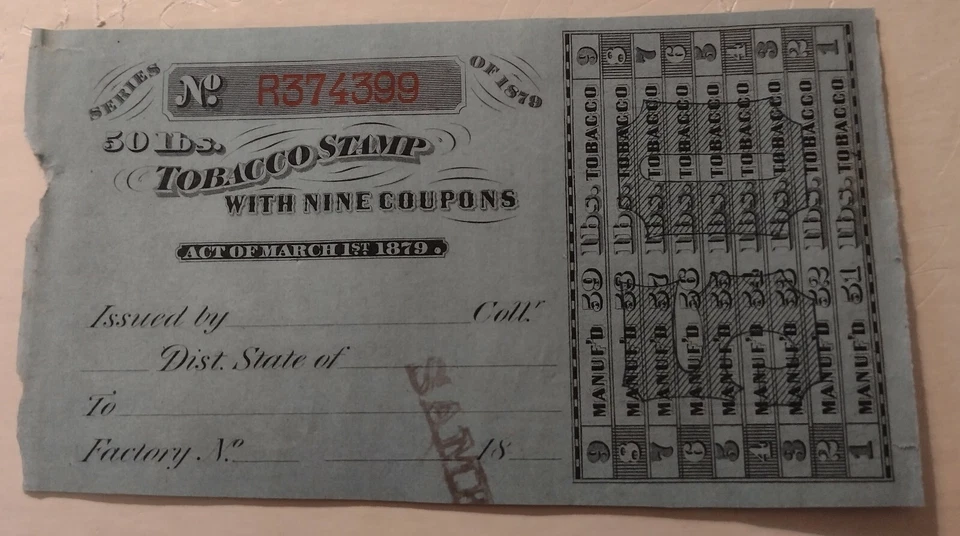 SERIES No. R374399 OF 1879
50 lbs.
TOBACCO STAMP
WITH NINE COUPONS
ACT OF MARCH 1ST. 1879.
Issued by Collr.
Dist. State of
To
Factory No. 18
9 MANUF'D 59 lbs. TOBACCO 9
8 MANUF'D 58 lbs. TOBACCO 8
7 MANUF'D 57 lbs. TOBACCO 7
6 MANUF'D 56 lbs. TOBACCO 6
5 MANUF'D 55 lbs. TOBACCO 5
4 MANUF'D 54 lbs. TOBACCO 4
3 MANUF'D 53 lbs. TOBACCO 3
2 MANUF'D 52 lbs. TOBACCO 2
1 MANUF'D 51 lbs. TOBACCO 1